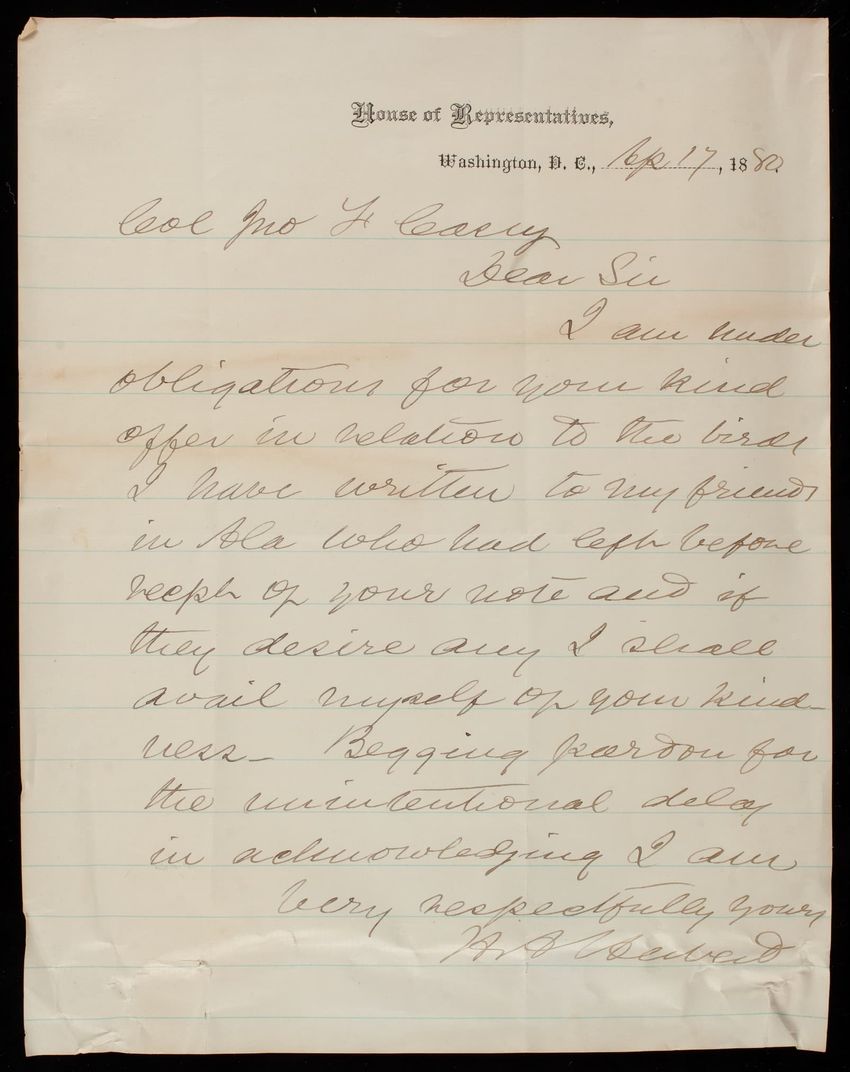 House of Representatives,
Washington, D. C., Ap 17, 1880.
Col Jno F Casey
Dear Sir
I am under
obligations for your kind
offer in relation to the birds
I have written to my friends
in Ala who had left before
recpt of your note and if
they desire any I shall
avail myself of your kind-
ness - Begging pardon for
the unintentional delay
in acknowledging I am
Very respectfully yours
H A Herbert